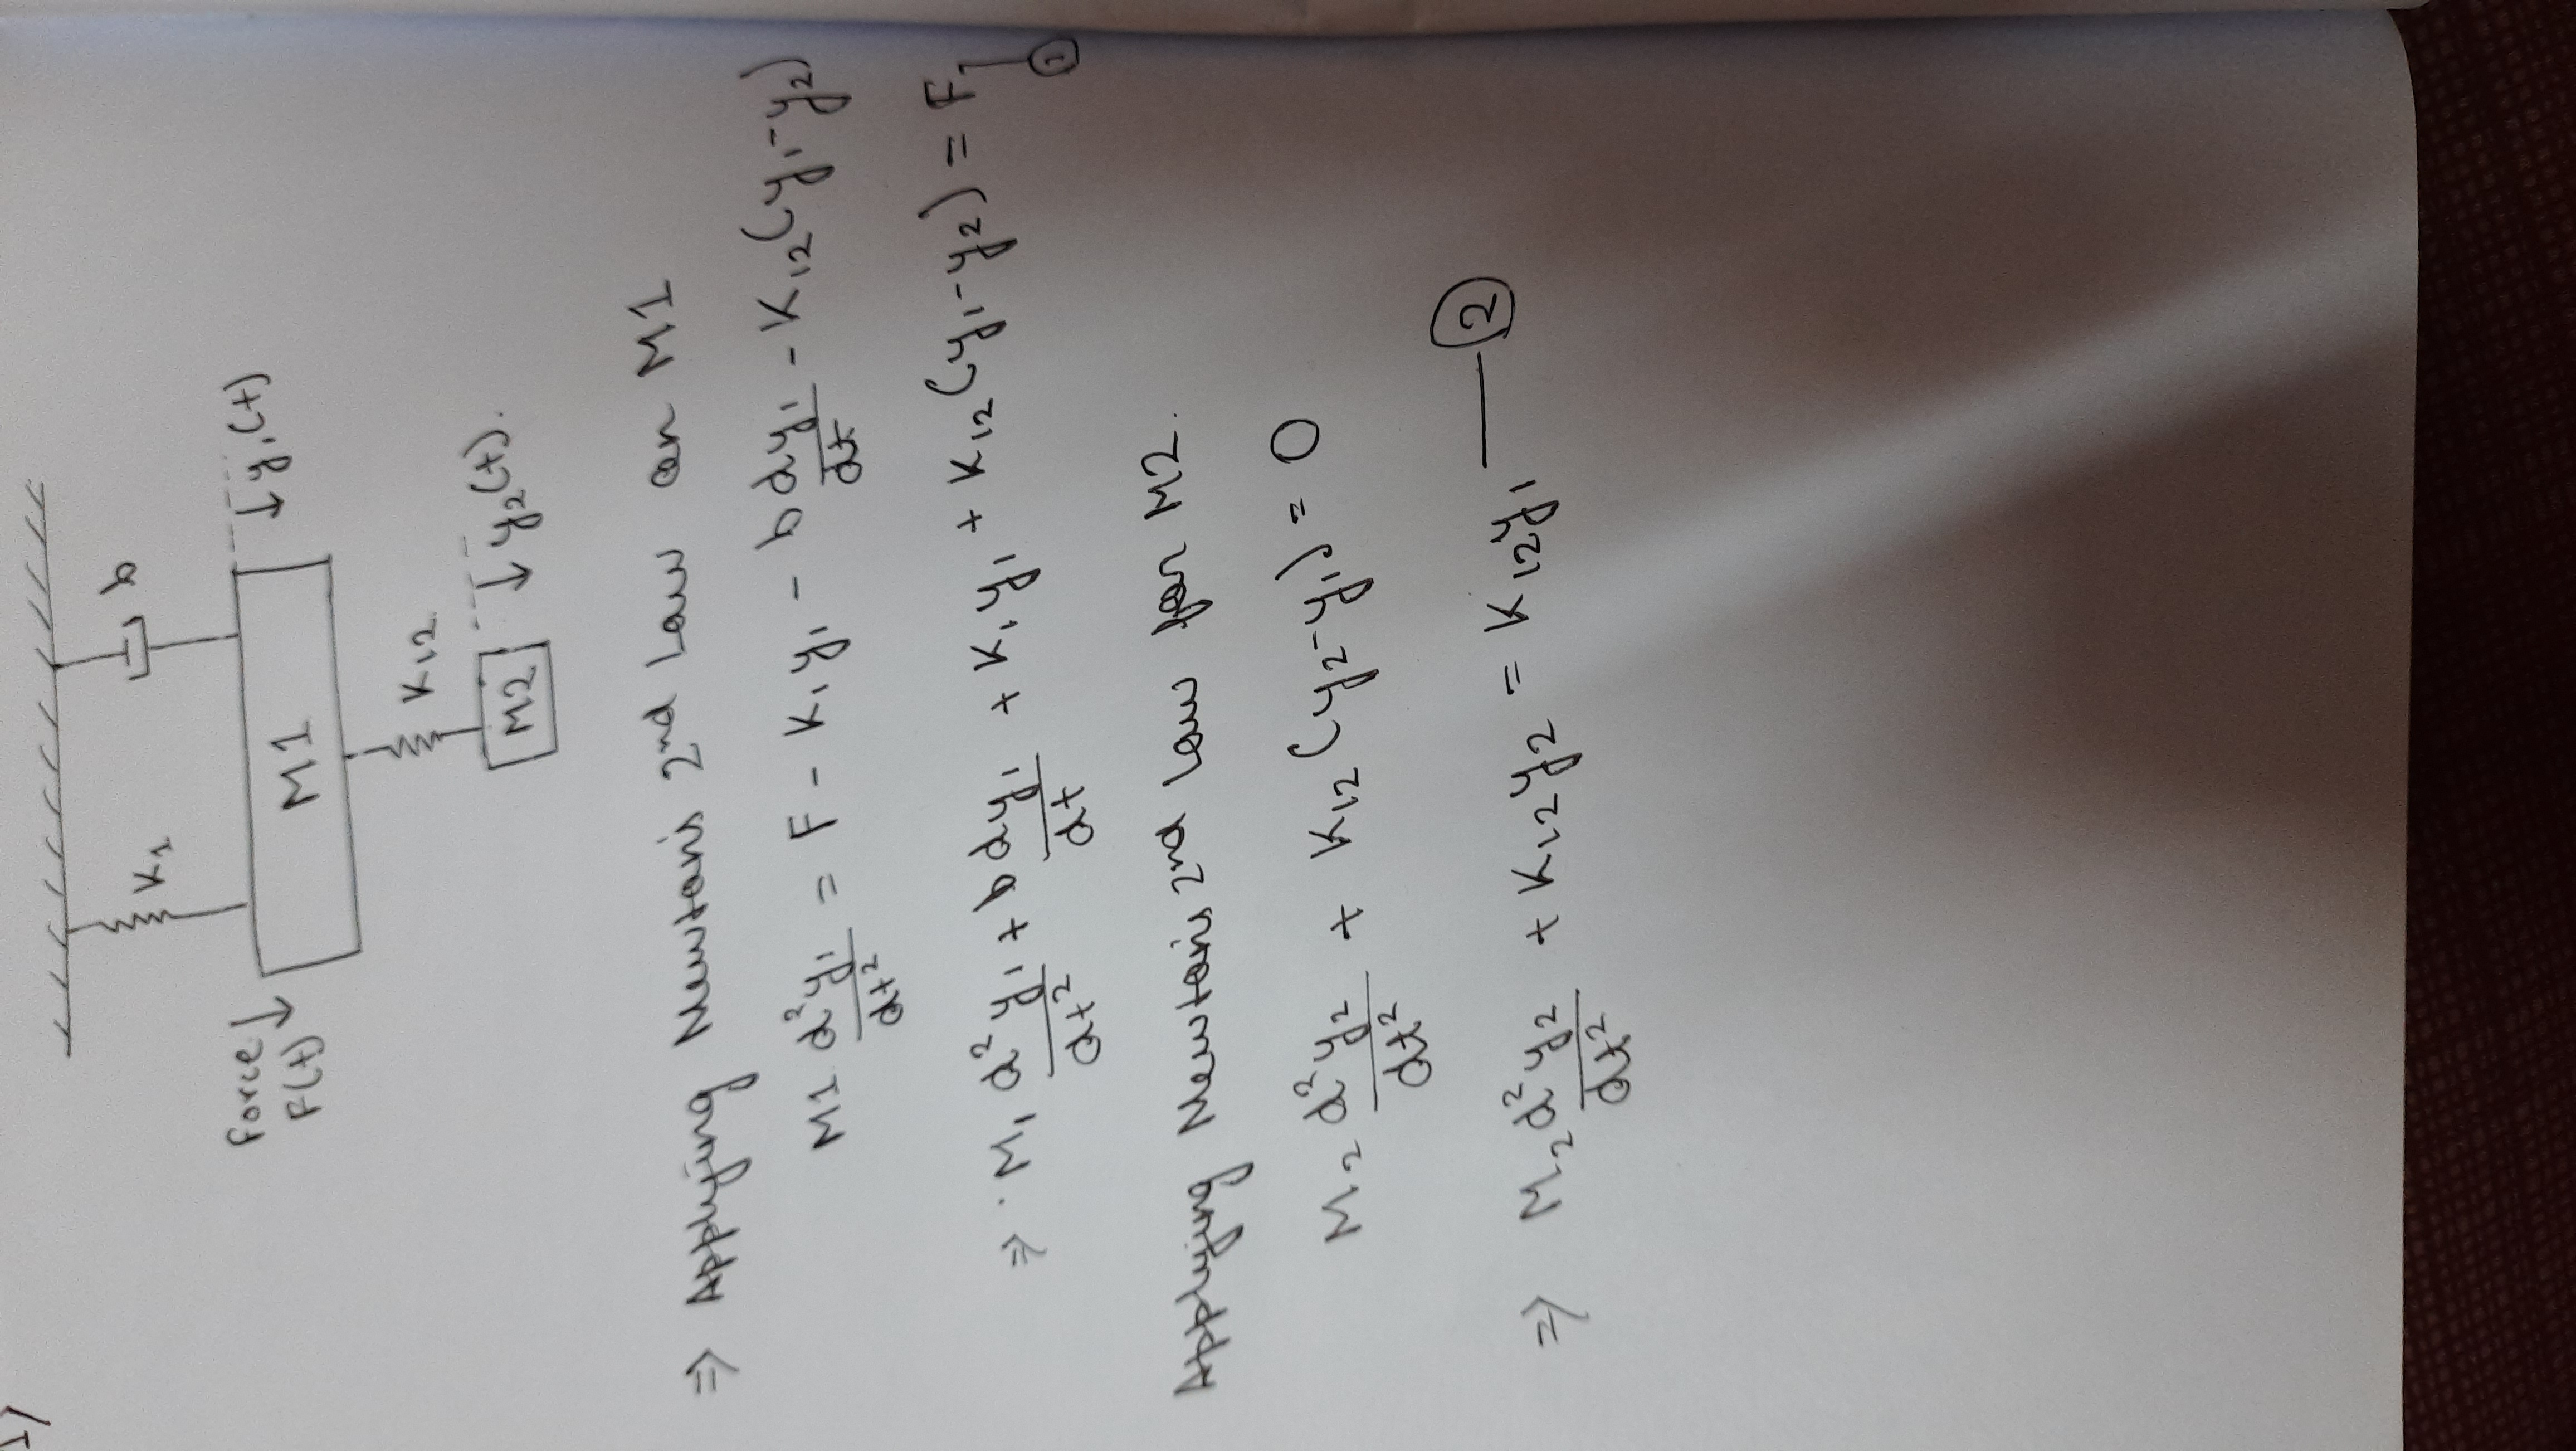 1)
K1
b
Force
F(t)
M1
↓y1(t)
K12
M2
↓y2(t).
⇒ Applying Newton's 2nd Law on M1
M1 d²y1/dt² = F - K1y1 - b dy1/dt - K12(y1-y2)
⇒ M1 d²y1/dt² + b dy1/dt + K1y1 + K12(y1-y2) = F — ①
Applying Newton's 2nd Law for M2.
M2 d²y2/dt² + K12(y2-y1) = 0
⇒ M2 d²y2/dt² + K12y2 = K12y1 — ②